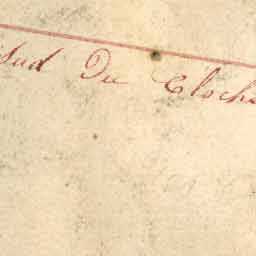 Sud Du Cloch